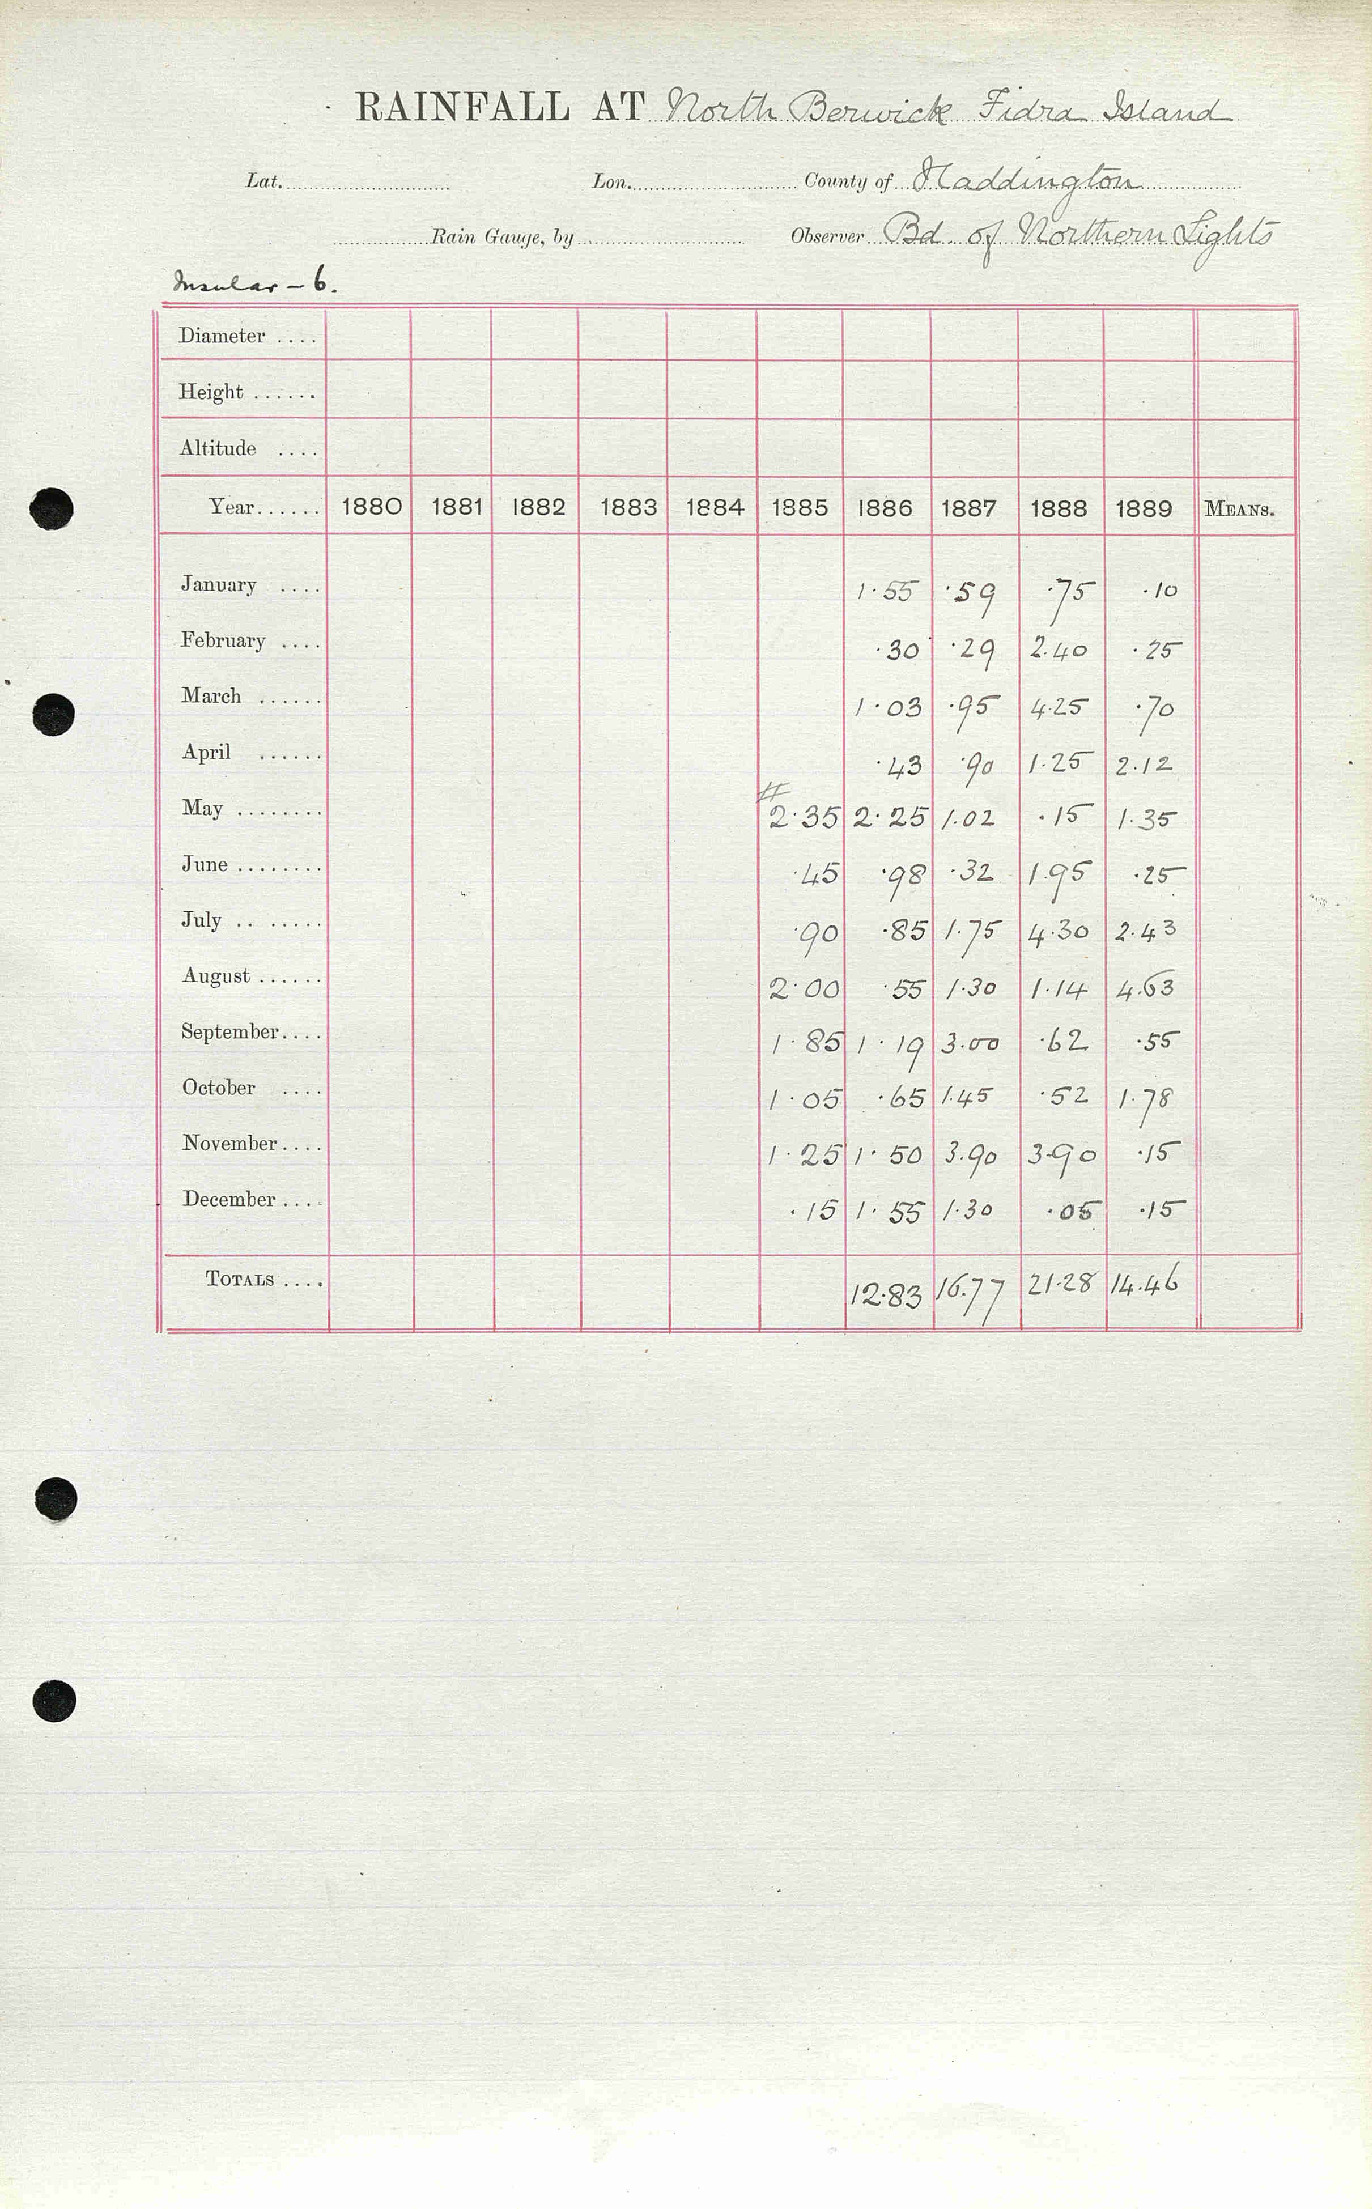 RAINFALL AT North Berwick Fidra Island
Lat. Lon. County of Haddington
Rain Gauge, by Observer Bd. of Northern Lights
Insular – 6.
Diameter ....
Height ......
Altitude ....
Year...... 1880 1881 1882 1883 1884 1885 1886 1887 1888 1889 MEANS.
January .... 1.55 .59 .75 .10
February .... .30 .29 2.40 .25
March ...... 1.03 .95 4.25 .70
April ...... .43 .90 1.25 2.12
May ........ 2.35 2.25 1.02 .15 1.35
June ........ .45 .98 .32 1.95 .25
July .. ...... .90 .85 1.75 4.30 2.43
August ...... 2.00 .55 1.30 1.14 4.63
September.... 1.85 1.19 3.00 .62 .55
October .... 1.05 .65 1.45 .52 1.78
November.... 1.25 1.50 3.90 3.90 .15
December .... .15 1.55 1.30 .05 .15
TOTALS .... 12.83 16.77 21.28 14.46